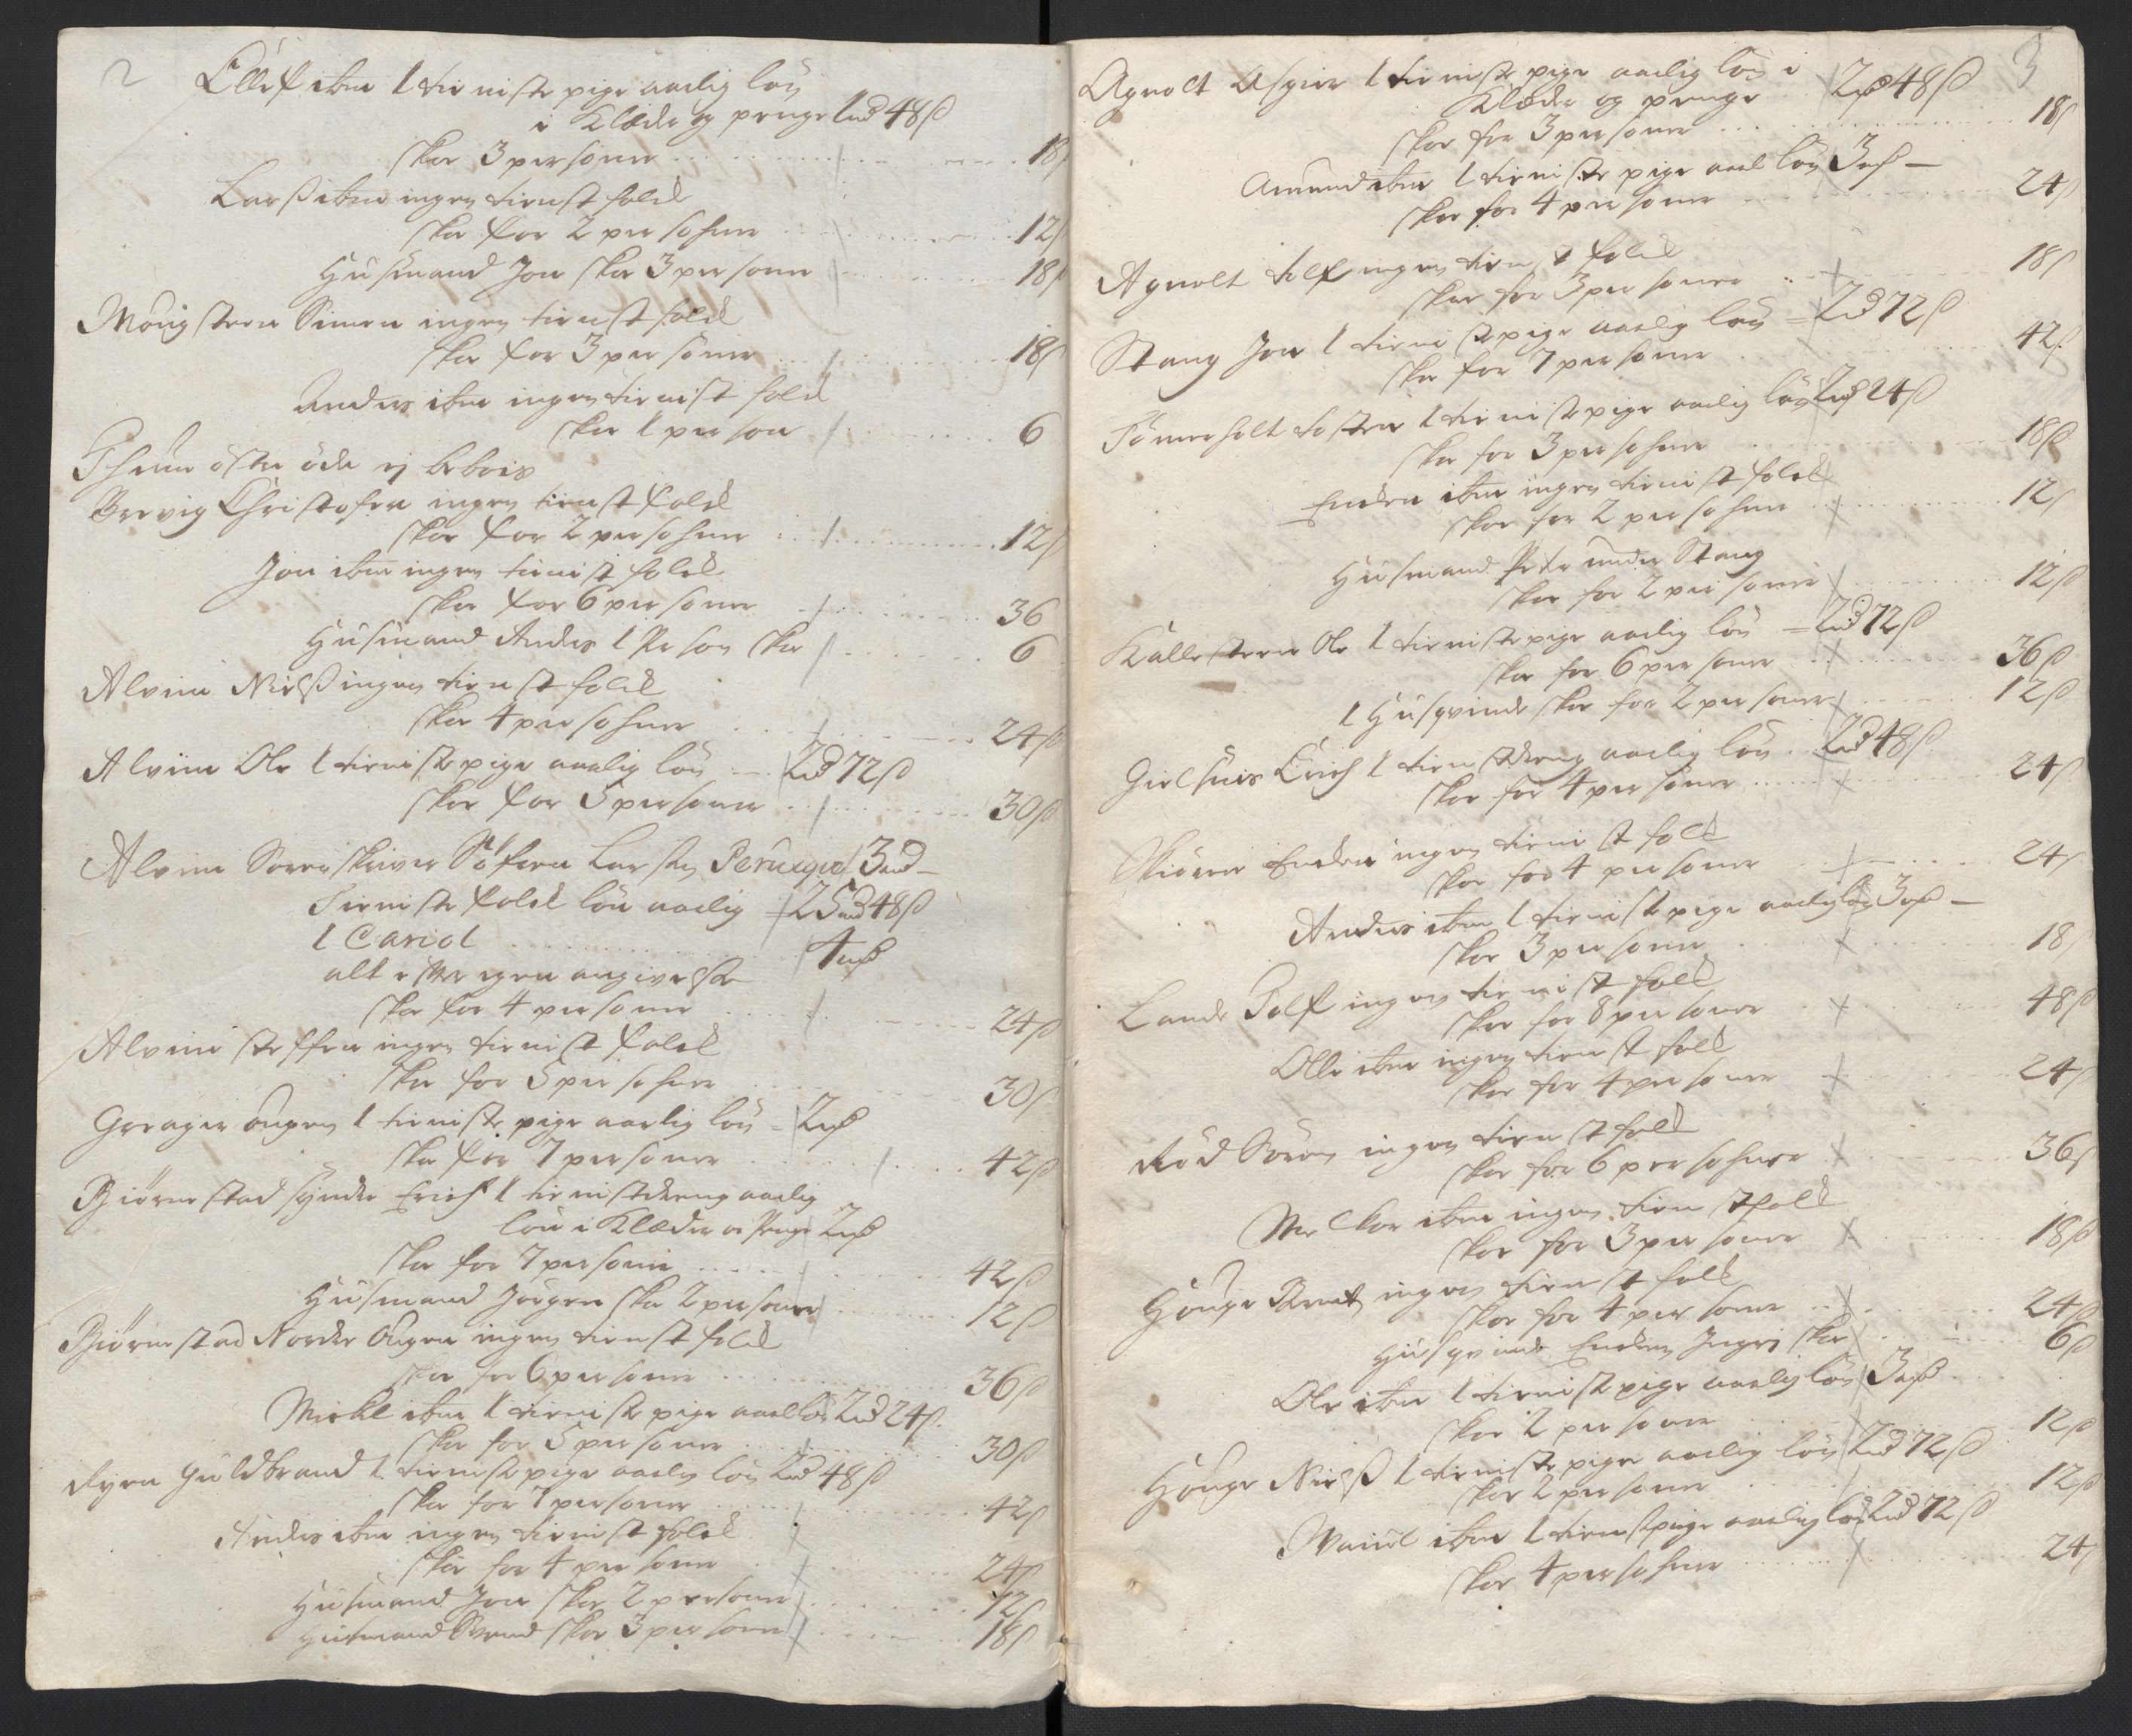 2
Ellef ibm 1 tieniste pige aarlig løn
i Klæder og penge 1 rd 48 ß
Skoe 3 personer 18 ß
Larß ibm ingen tienst folck
Skoe for 2 persohner 12 ß
Huusmand Jon Skoe 3 personer 18 ß
Simen ingen tienst folck
Skoe for 3 personer 18 ß
Anders ibm ingen tienist folck
Skoe 1 person 6
østre øde ej bebois
Brevig Christofer ingen tienst folck
Skoe for 2 persohner 12 ß
Jon ibm ingen tienist folck
Skoe for 6 personer 36
Huusmand Anders 1 Person Skoe 6
Alvim Nielß ingen tienst folck
Skoe 4 persohner 24 ß
Alvim Ole 1 tieniste pige aarlig løn 2 rd 72 ß
Skoe for 5 personer 30 ß
Alvim Sorenskriver Larsen Peruque 3 rd
Tieniste folck løn aarlig 25 rd 48 ß
1 Cariol 4 rd
alt efter egen angivelse
Skoe for 4 personer 24 ß
Alvim Steffen ingen tienist folck
Skoe for 5 persohner 30 ß
Greager 1 tieniste pige aarlig løn 2 rd
Skoe for 7 personer 42 ß
Biørnstad Syndre Erich 1 tienistdreng aarlig
løn i Klæder og Penge 2 rd
Skoe for 7 personer 42 ß
Huusmand Jørgen Skoe 2 personer 12 ß
Biørnstad Nordre ingen tienst folck
Skoe for 6 personer 36 ß
Mickel ibm 1 tieniste pige aarl løn 2 rd 24 ß
Skoe for 5 personer 30 ß
Guldbrand 1 tieniste pige aarlig løn 2 rd 48 ß
Skoe for 7 personer 42 ß
Anders ibm ingen tienist folck
Skoe for 4 personer 24 ß
Huusmand Jon Skoe 2 personer 12 ß
Huusmand Svend Skoe 3 personer 18 ß
3
Agnolt Asgier 1 tieniste pige aarlig løn i
Klæder og penge 2 rd 48 ß
Skoe for 3 personer 18 ß
Amund ibm 1 tieniste pige aarl løn 3 rd
Skoe for 4 personer 24 ß
Agnolt ingen tienst folck
Skoe for 3 personer 18 ß
Stang Jon 1 tieniste pige aarlig løn 2 rd 72 ß
Skoe for 7 personer 42 ß
Tømerholt Tosten 1 tieniste pige aarlig løn 2 rd 24 ß
Skoe for 3 persohner 18 ß
Enden ibm ingen tienist folck
Skoe for 2 persohner 12 ß
Huusmand Peder under Stang
Skoe for 2 personer 12 ß
Kallestern Ole 1 tieniste pige aarlig løn 2 rd 72 ß
Skoe for 6 personer 36 ß
1 Huusqvinde Skoe for 2 personer 12 ß
Erich 1 tienstdreng aarlig løn 2 rd 48 ß
Skoe for 4 personer 24 ß
Enden ingen tienist folck
Skoe for 4 personer 24 ß
Anders ibm 1 tieniste pige aarlig løn 3 rd
Skoe 3 personer 18 ß
Lande Rolf ingen tienist folck
Skoe for 8 personer 48 ß
Olle ibm ingen tienst folck
Skoe for 4 personer 24 ß
Rød Søren ingen tienst folck
Skoe for 6 persohner 36 ß
Melkor ibm ingen tienst folck
Skoe for 3 personer 18 ß
Houge Bent ingen tienst folck
Skoe for 4 personer 24 ß
Huusqvinde Enken Ingri Skoe 6 ß
Ole ibm 1 tieniste pige aarlig løn 3 rd
Skoe 2 personer 12 ß
Houge Nielß 1 tieniste pige aarlig løn 2 rd 72 ß
Skoe 2 personer 12 ß
ibm 1 tienst pige aarlig løn 2 rd 72 ß
Skoe 4 persohner 24 ß